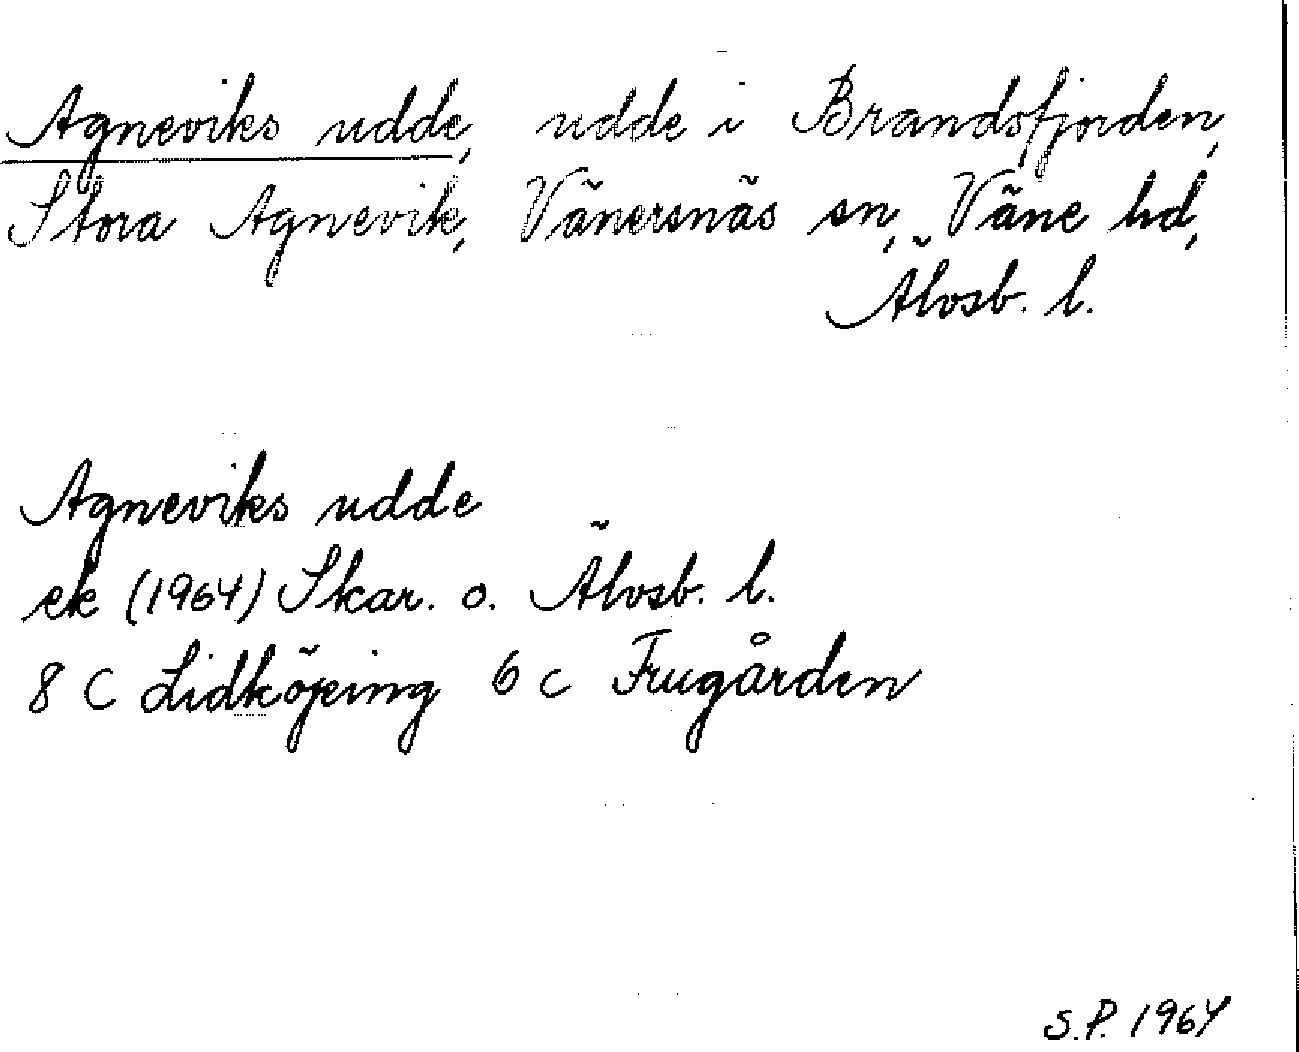 Agneviks udde, udde i Brandsfjorden,
Stora Agnevik, Vänersnäs sn, Väne hd,
Älvsb. l.
Agneviks udde
ek (1964) Skar. o. Älvsb. l.
8 C Lidköping 6 c Frugården
S.P. 1964